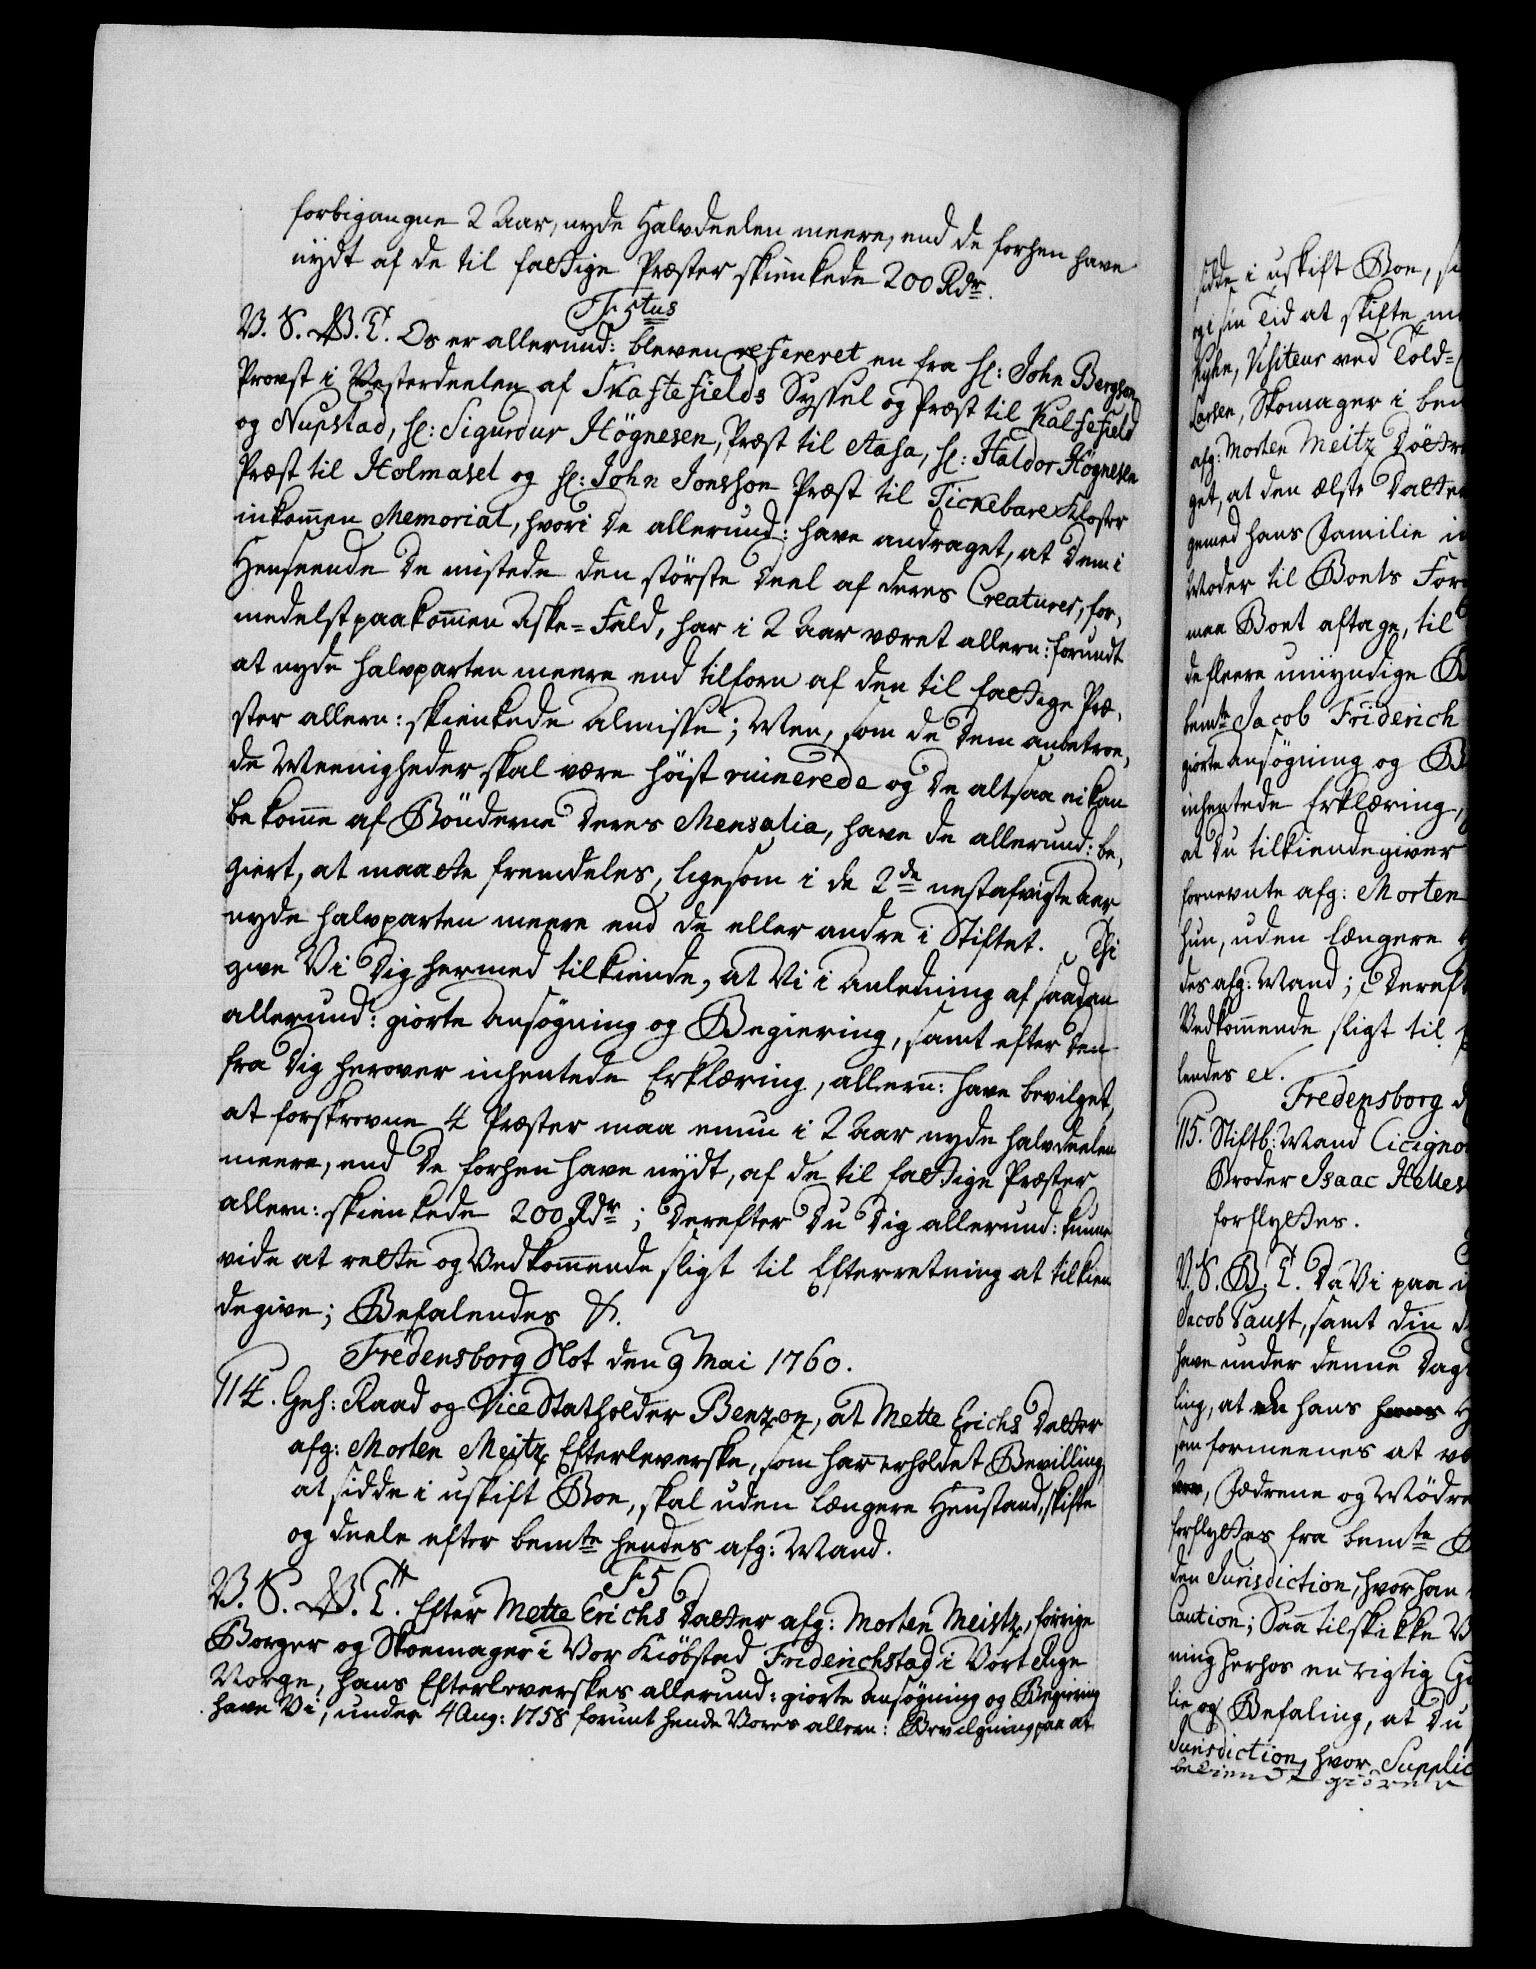 forbigangne 2 Aar, nyde Halvdeelen meere, end de forhen have
nydt af de til fattige Præster skienkede 200 Rdr.
F. 5tus
V. S. G. B. T. Os er allerund: bleven refereret en fra hr: John Bergson,
Provst i Vesterdeelen af Skaftefields Syssel og Præst til Kalfefield
og Nupstad, hr: Sigurdur Högnesen, Præst til Aasa, hr: Haldor Högnesen
Præst til Holmasel og hr: John Jonsson Præst til Tickebare Kloster
inkommen Memorial, hvori De allerund: have andraget, at Dem i
Henseende De mistede den største Deel af deres Creaturer, for-
medelst paakommen Aske-Fald, har i 2 Aar været allern: forundt
at nyde halvparten meere end tilforn af den til fattige Præ-
ster allern: skienkede Almisse; Men, som de Dem anbetroe-
de Meenigheder skal være høist ruinerede og De altsaa ei kan
bekomme af Bønderne Deres Mensalia, have de allerund: be-
giert, at maatte fremdeles, ligesom i de 2de nestafvigte Aar
nyde halvparten meere end de eller andre i Stiftet. Thi
give Vi Dig hermed tilkiende, at Vi i Anledning af saadan
allerund: giorte Ansøgning og Begiering, samt efter Den
fra Dig herover inhentede Erklæring, allern: have bevilget,
at forskrevne 4 Præster maa ennu i 2 Aar nyde halvdeelen
meere, end De forhen have nydt, af de til fattige Præster
allern: skienkede 200 Rdr; Derefter Du Dig allerund: kunne
vide at rette og Vedkommende sligt til Efterretning at tilkien
degive; Befalendes &.
Fredensborg Slot den 9 Mai 1760.
114. Geh: Raad og Vice Statholder Benzon, at Mette Erichs Datter
afg: Morten Meitz Efterleverske, som har erholdet Bevilling,
at sidde i uskift Boe, skal uden længere Henstand, skifte
og deele efter bemte hendes afg: Mand.
F 5
V. S. G. B. T. Efter Mette Erichs Datter afg: Morten Meistz, forrige
Borger og Skoemager i Vor Kiøbsted Friderichstad i Vort Rige
Norge, hans Efterleverskes allerund: giorte Ansøgning og Begiering
have Vi, under 4 Aug: 1758 forunt hende Vores allern: Bevilgning paa at
sidde i uskift Boe, s
og i sin Tid at skifte m
Kyhn, Visiteur ved Told-
Larsen, Skomager i bem
afg: Morten Meitz Döttre
get, at den ælste Datter
gemed hans Familie i
Moder til Boets For
maa Boet aftage, til
de fleere umyndige B
bemte Jacob Friderich
giorte Ansøgning og B
inhentede Erklæring,
at Du tilkiendegiver
fornevnte afg: Morten
hun, uden længere
des afg: Mand; Dereft
Vedkommende sligt til
lendes &.
Fredensborg d
115. Stiftb: Mand Cicigno
Broder Isaac Helles
forflyttes.
V. S. G. B. T. Da Vi paa
Jacob Faust, samt Din
have under Denne Dag
ling, at hans
som formeenes at
Fædrene og Mødre
forflyttes fra bemte
den Jurisdiction, hvor han
Caution; Saa tilskikke V
ning herhos en rigtig
lie og Befaling, at Du
Jurisdiction, hvor Supplic
bekiendt giøre